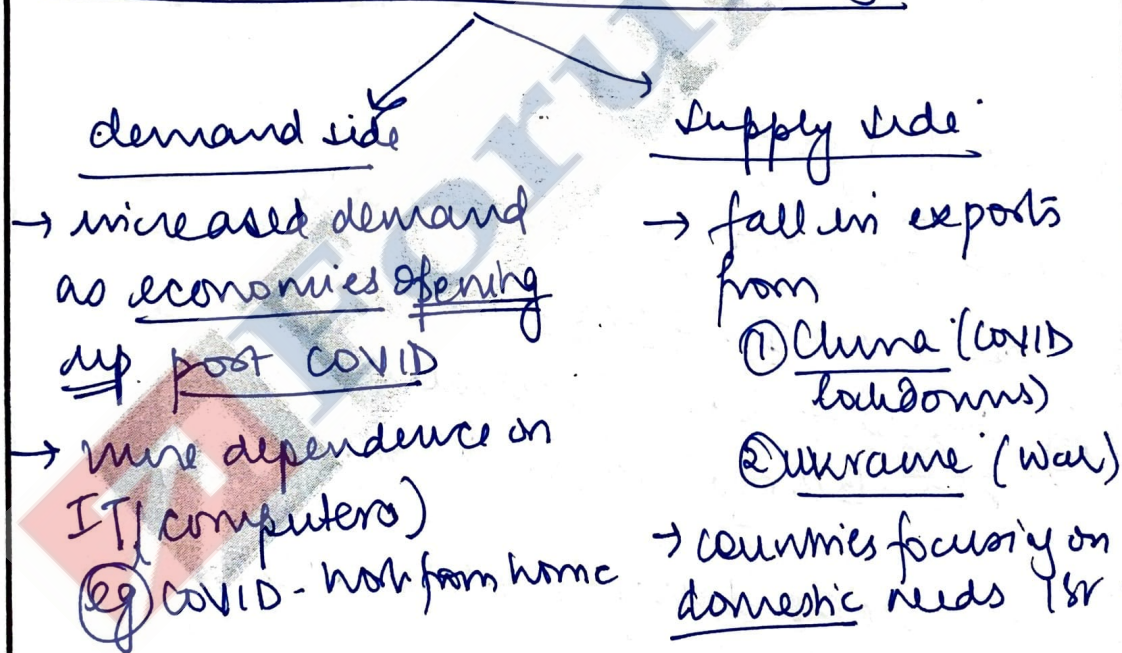 demand side
→ increased demand
as economies opening
up post COVID
→ more dependence on
IT (computers)
eg COVID - work from home
supply side
→ fall in exports
from
① China (COVID
lockdowns)
② Ukraine (war)
→ countries focusing on
domestic needs 1st
Forum